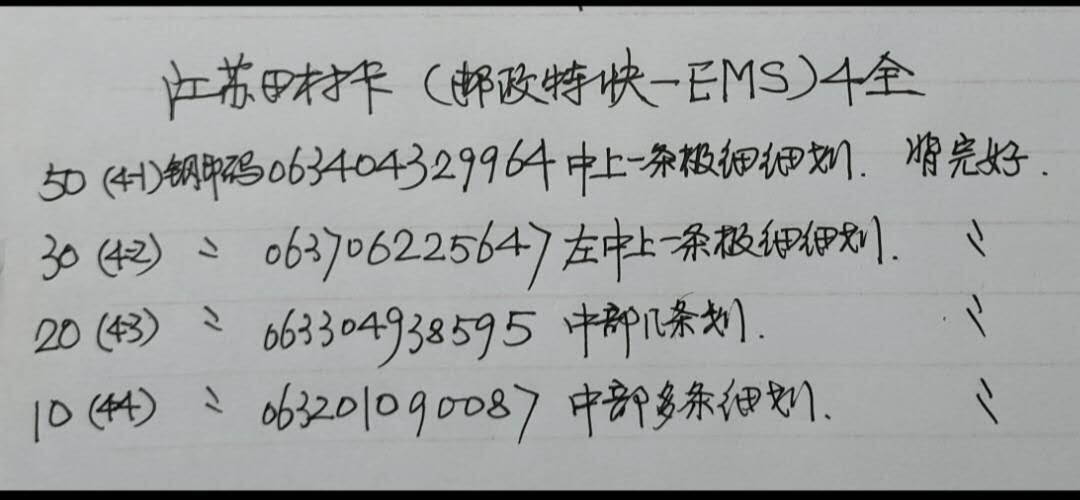 江苏田村卡（邮政特快一EMS）4全
50 (4-1) 钢印码063404329964中上一条极细细划. 背完好.
30 (4-2) 〃 063706225647左中上一条极细细划. 〃
20 (4-3) 〃 063304938595 中部几条划. 〃
10 (4-4) 〃 063201090087 中部多条细划. 〃